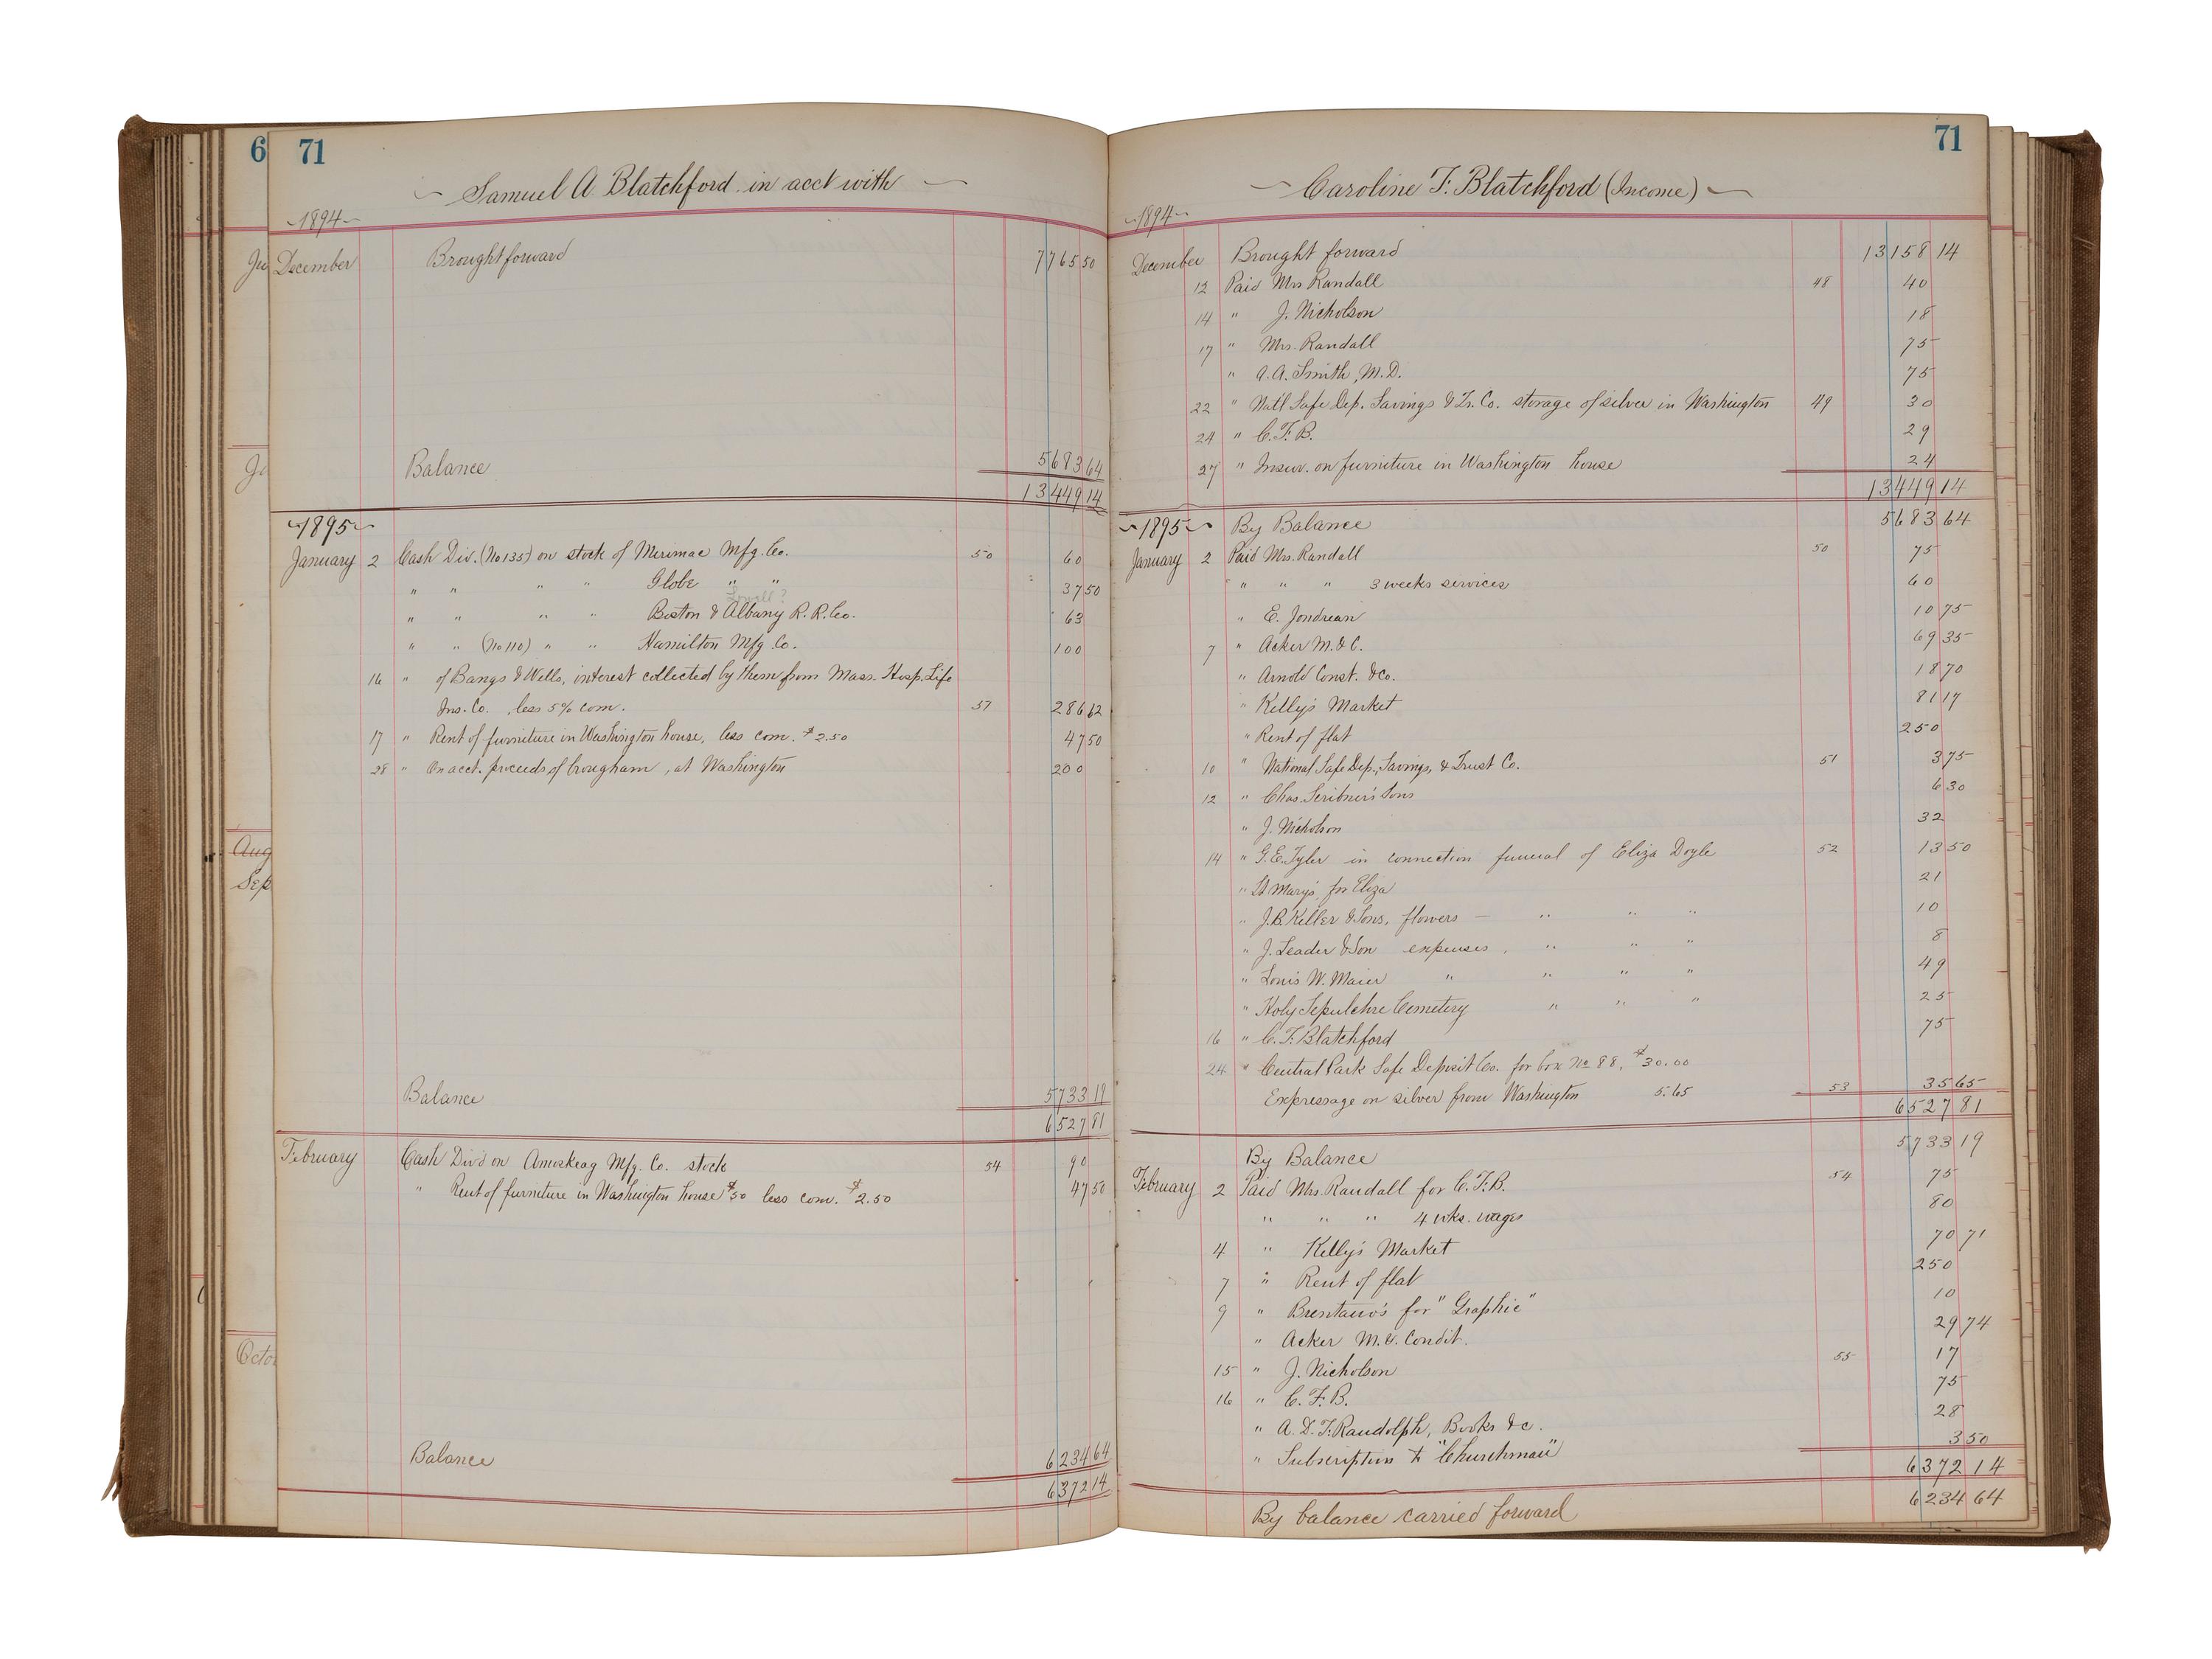 6
71
Samuel A Blatchford in acct with
1894
Ju December Brought forward 7765 50
Ja Balance 5683 64
13449 14
1895
January 2 Cash Div. (No 135) on stock of Merimac Mfg. Co. 50 60
" " " " Globe " " 37 50
Lowell?
" " " " Boston & Albany R. R. Co. 63
" " (No 110) " " Hamilton Mfg. Co. 100
16 " of Bangs & Wells, interest collected by them from Mass. Hosp. Life
Ins. Co., less 5% com. 57 286 62
17 " Rent of furniture in Washington house, less com. $2.50 47 50
28 " On acct. proceeds of brougham, at Washington 200
Aug
Sep
Balance 5733 19
6527 81
February Cash Divd on Amoskeag Mfg. Co. stock 54 90
" Rent of furniture in Washington house $50 less com. $2.50 47 50
Octo
Balance 6234 64
6372 14
71
Caroline F. Blatchford (Income)
1894
December Brought forward 13158 14
12 Paid Mrs Randall 48 40
14 " J. Nicholson 18
17 " Mrs. Randall 75
" A. A. Smith, M. D. 75
22 " Nat'l Safe Dep. Savings & Tr. Co. storage of silver in Washington 49 30
24 " C. F. B. 29
27 " Insur. on furniture in Washington house 24
13449 14
1895 By Balance 5683 64
January 2 Paid Mrs. Randall 50 75
" " " 3 weeks services 60
" E. Jondrean 10 75
7 " Acker M. & C. 69 35
" Arnold Const. & Co. 18 70
" Kelly's Market 81 17
" Rent of flat 250
10 " National Safe Dep., Savings, & Trust Co. 51 3 75
12 " Chas. Scribner's Sons 6 30
" J. Nicholson 32
14 " G. E. Tyler in connection funeral of Eliza Doyle 52 13 50
" St Mary's for Eliza 21
" J. B. Keller & Sons, flowers — " " " 10
" J. Leader & Son expenses, " " " 8
" Louis W. Maier " " " " 49
" Holy Sepulchre Cemetery " " " 25
16 " C. F. Blatchford 75
24 " Central Park Safe Deposit Co. for box No 88, $30.00
Expressage on silver from Washington 5.65 53 35 65
6527 81
By Balance 5733 19
February 2 Paid Mrs. Randall for C. F. B. 54 75
" " " 4 wks. wages 80
4 " Kelly's Market 70 71
7 " Rent of flat 250
9 " Brentano's for "Graphic" 10
" Acker M. & Condit. 29 74
15 " J. Nicholson 55 17
16 " C. F. B. 75
" A. D. F. Randolph, Books &c. 28
" Subscription to "Churchman" 3 50
6372 14
By balance carried forward 6234 64